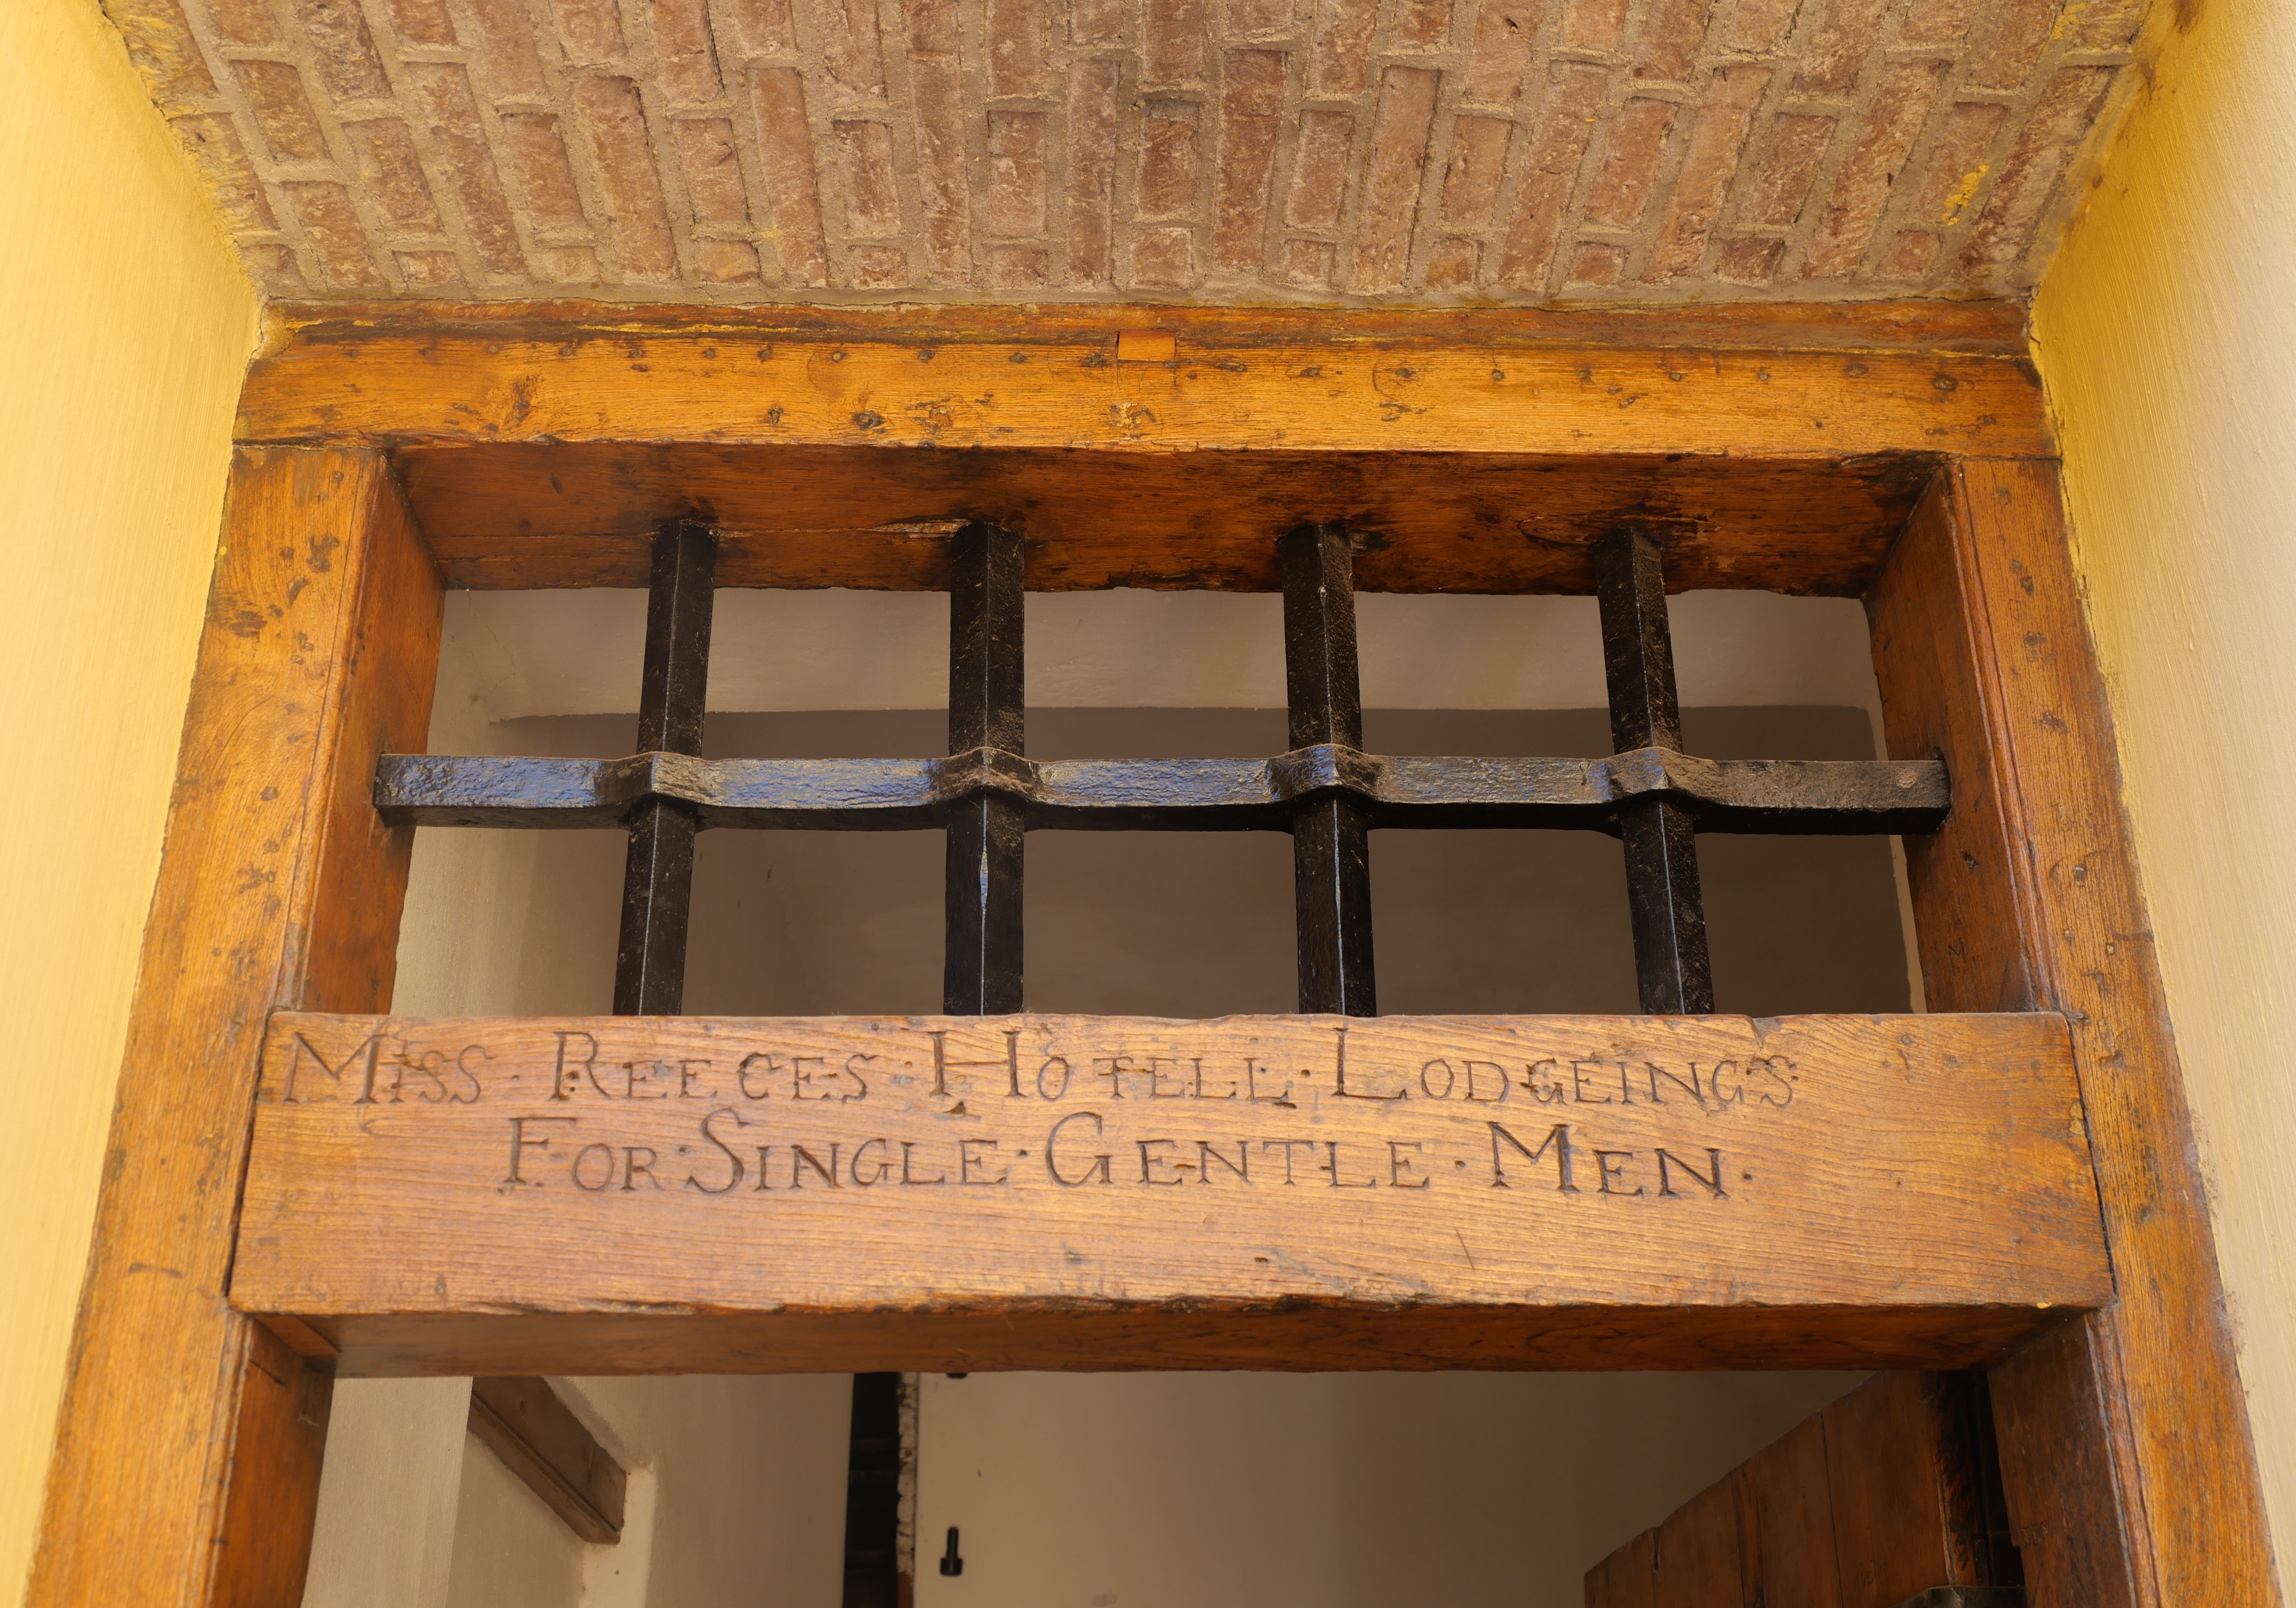 MISS · REECES · HOTELL · LODGEINGS
FOR · SINGLE · GENTLE · MEN ·